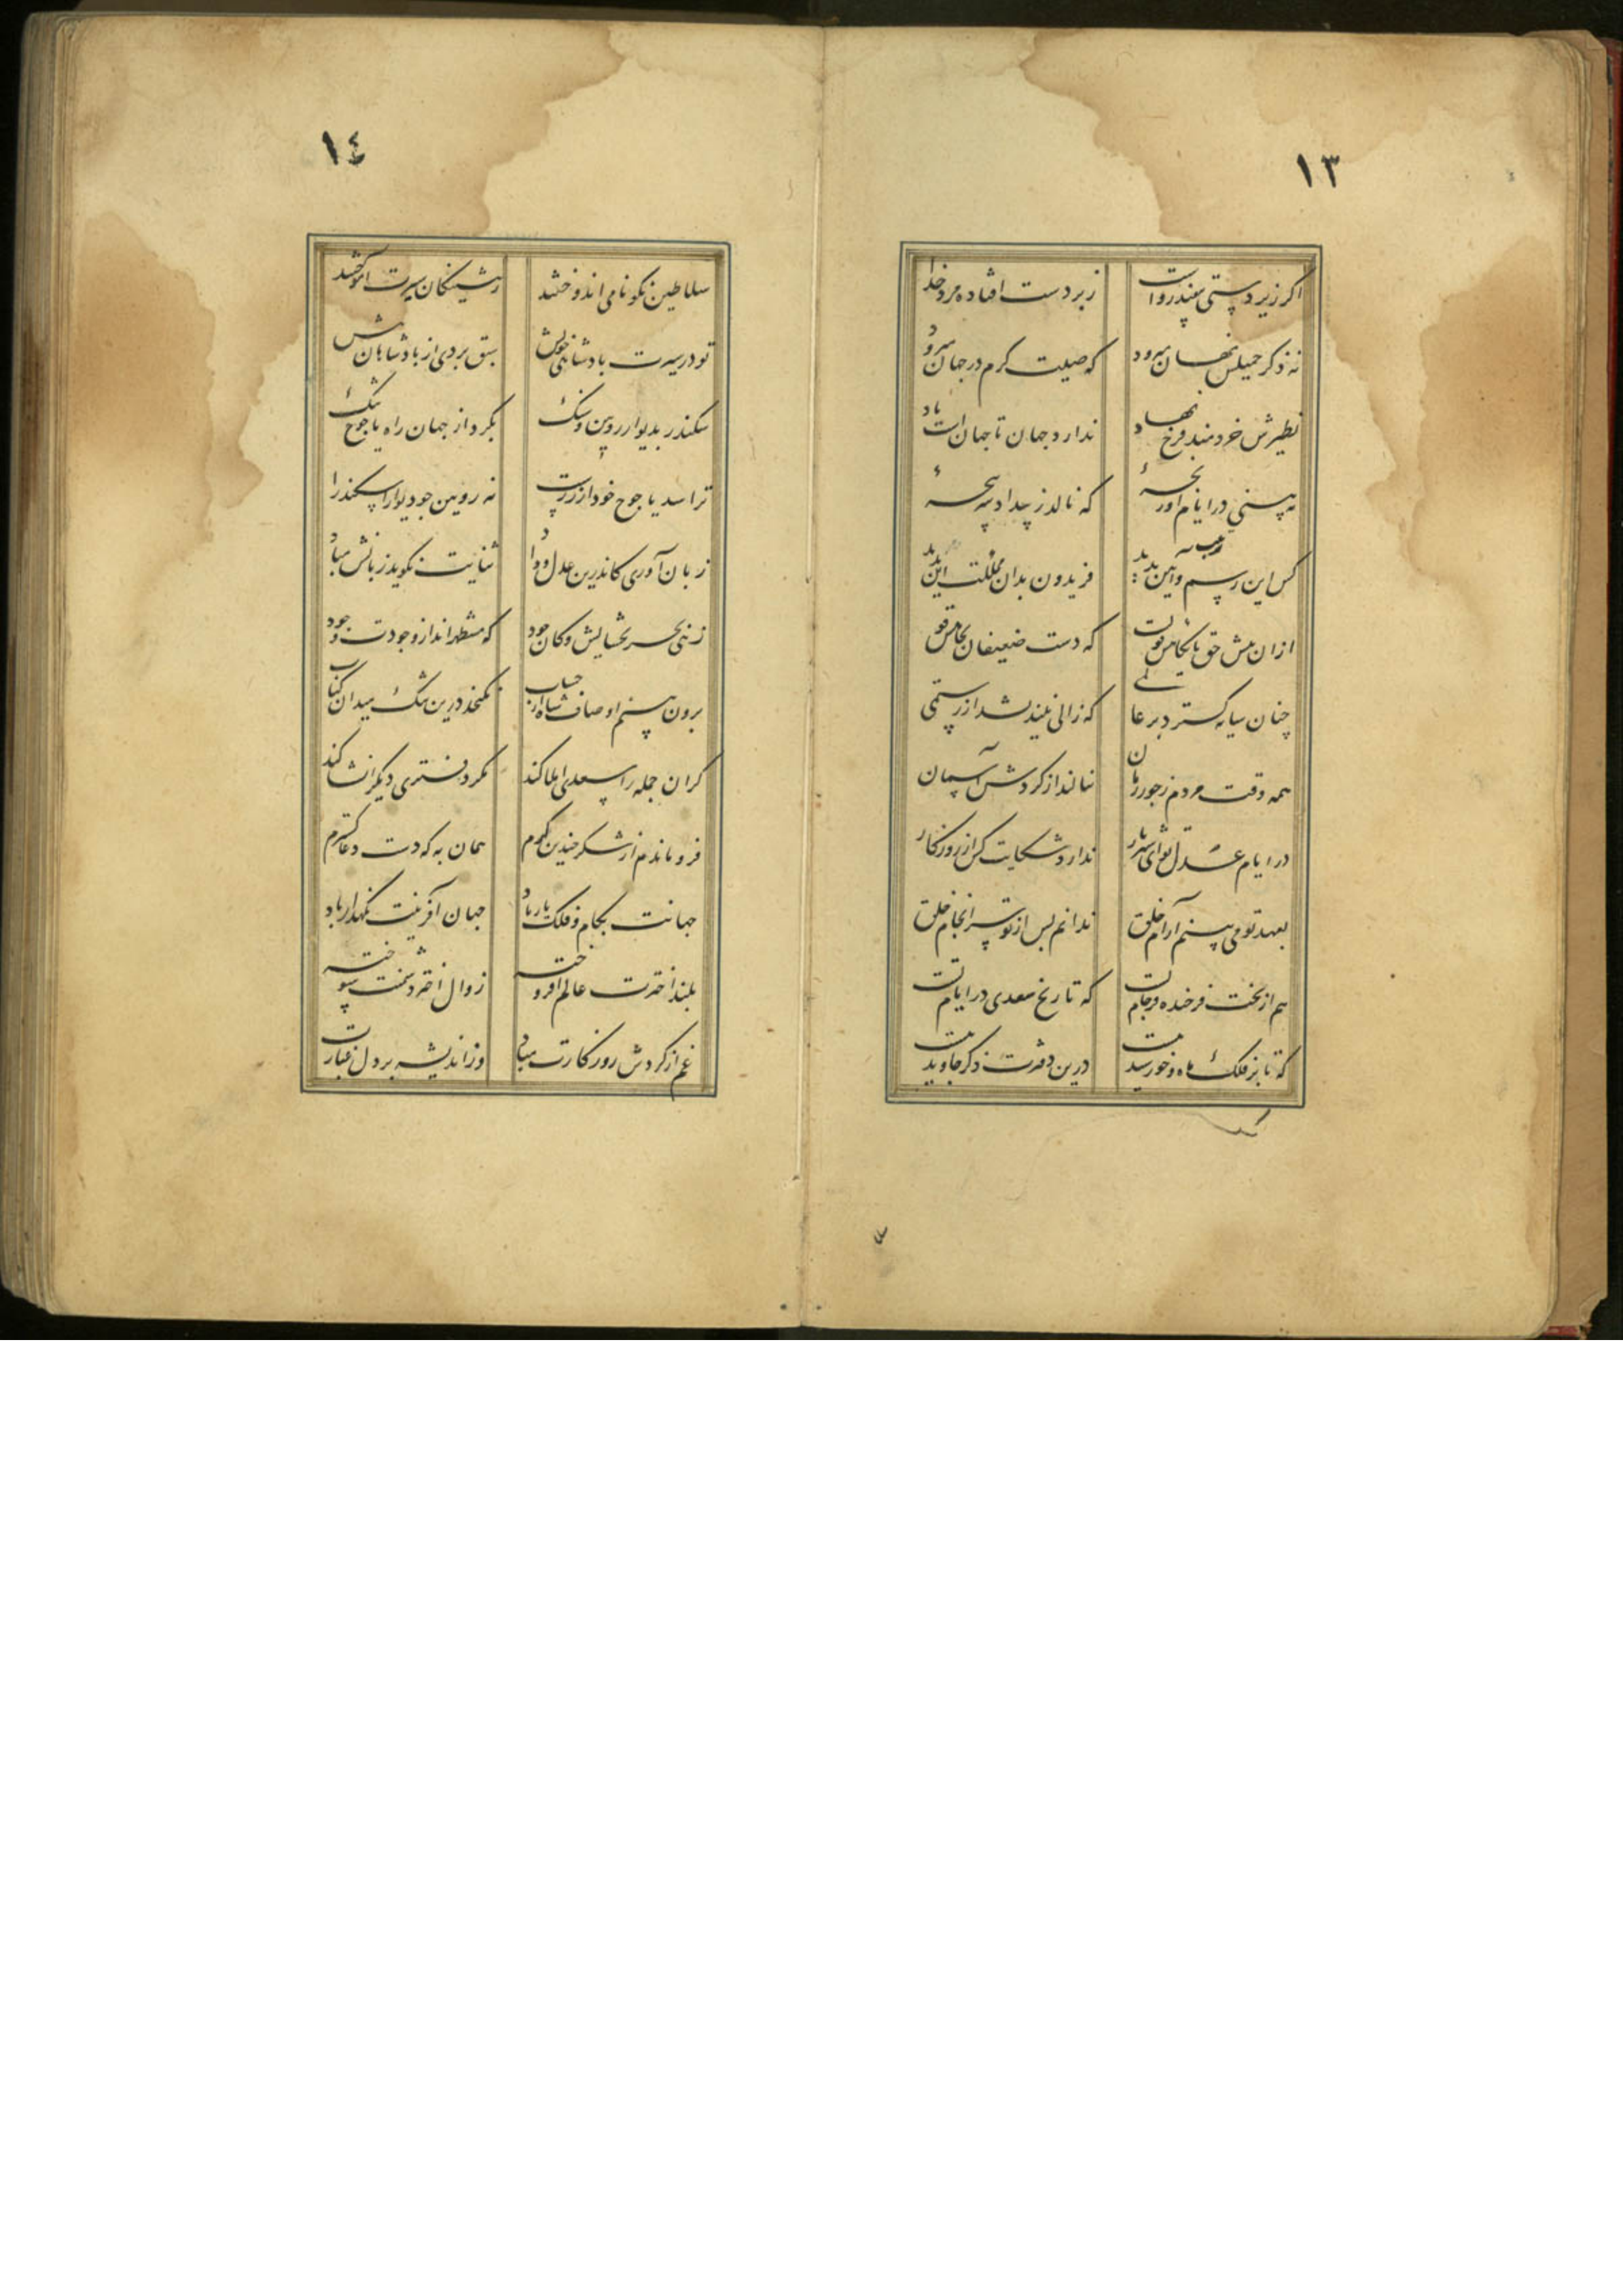 ١٣
اگر زیردستی بیفتد رواست زبردست افتاده مرد خداست
نه ذکر جمیلش نهان میرود که صیت کرم در جهان میرود
نظیرش خردمند فرخ نهاد ندارد جهان تا جهانست یاد
نه بینی در ایام او رنجۀ که نالد ز بیداد سرپنجۀ
کس این رسم و ترتیب و آیین ندید فریدون بدان مملکت این ندید
ازان پیش حق پایگاهش قویست که دست ضعیفان بجاهش قویست
چنان سایه گسترد بر عالمی که زالی نیندیشد از رستمی
همه وقت مردم ز جور زمان بنالند از گردش آسمان
در ایام عدل تو ای شهریار ندارد شکایت کس از روزگار
بعهد تو می بینم آرام خلق ندانم پس از تو سرانجام خلق
هم از بخت فرخنده فرجام تست که تاریخ سعدی در ایام تست
که تا بر فلک ماه و خورشید هست درین دفترت ذکر جاوید هست
١٤
سلاطین نکونامی اندوختند ز پیشینگان سیرت آموختند
تو در سیرت پادشاهی خویش سبق بردی از پادشاهان پیش
سکندر بدیوار رویین و سنگ بکرد از جهان راه یاجوج تنگ
ترا سد یاجوج خود از زرست نه رویین چو دیوار اسکندرست
زبان آوری کاندرین عدل و داد ثنایت نگوید زبانش مباد
زهی بحر بخشایش و کان جود که مستظهراند از وجودت وجود
برون بینم اوصاف شاه از حساب نگنجد درین تنگ میدان کتاب
گر آن جمله را سعدی املا کند مگر دفتری دیگر انشا کند
فرو ماندم از شکر چندین کرم همان به که دست دعا گسترم
جهانت بکام و فلک یار باد جهان آفرینت نگهدار باد
بلند اخترت عالم افروخته زوال اختر دشمنت سوخته
غم از گردش روزگارت مباد وز اندیشه بر دل غبارت